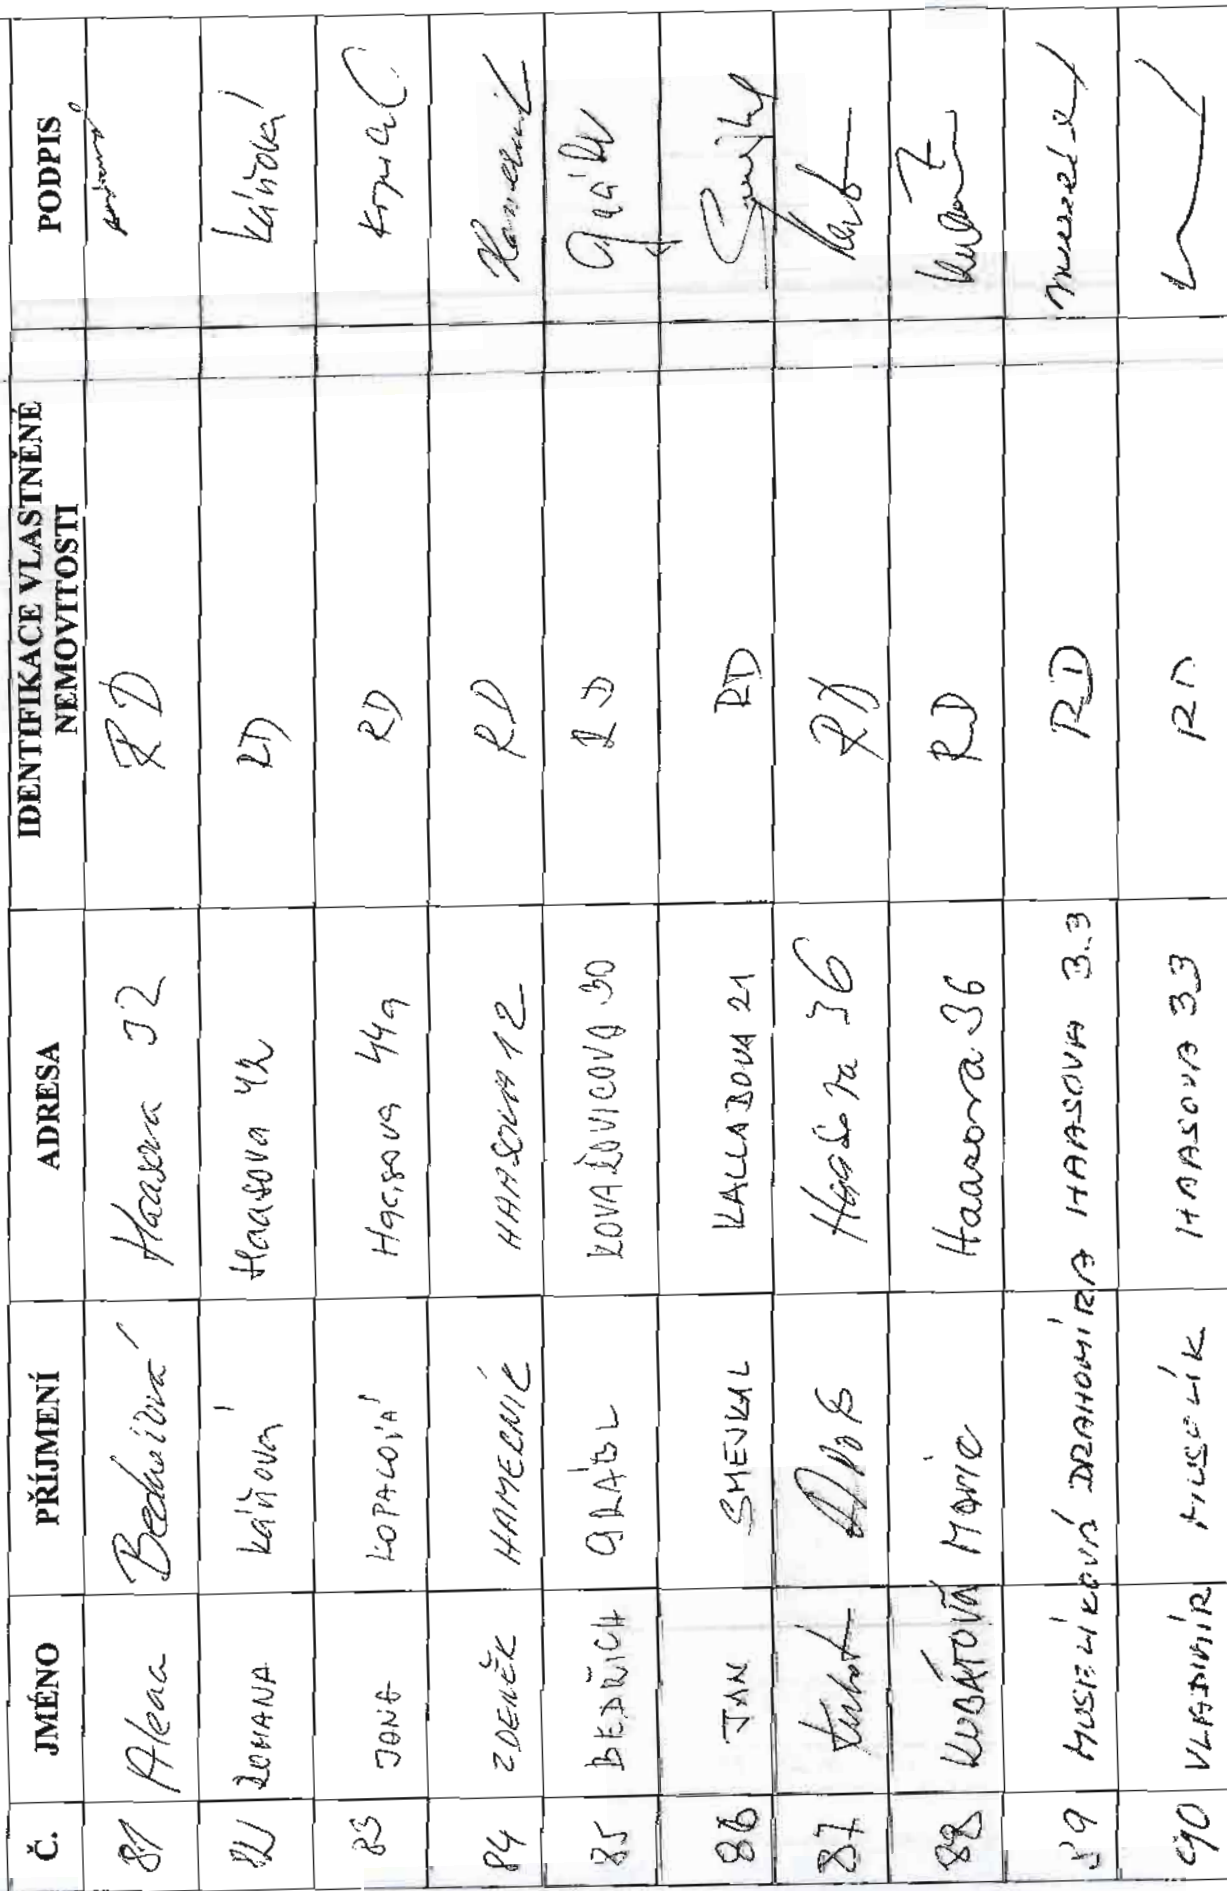 Č. JMÉNO PŘÍJMENÍ ADRESA IDENTIFIKACE VLASTNĚNÉ NEMOVITOSTI PODPIS
81 Alena Haasova 32 RD
82 ROMANA Káňová Haasova 42 RD Káňová
83 JANA KOPALOVÁ Haasova 44a RD
84 ZDENĚK HAMERNÍK HAASOVA 12 RD
85 BEDŘICH GRÁBL KOVAŘOVICOVA 30 RD
86 JAN SMEJKAL KALLABOVA 21 RD
87 Kubát Haasova 36 RD
88 KUBÁTOVÁ Marie Haasova 36 RD
89 MUSELÍKOVÁ DRAHOMÍRA HAASOVA 33 RD
90 VLADIMÍR MUSELÍK HAASOVA 33 RD